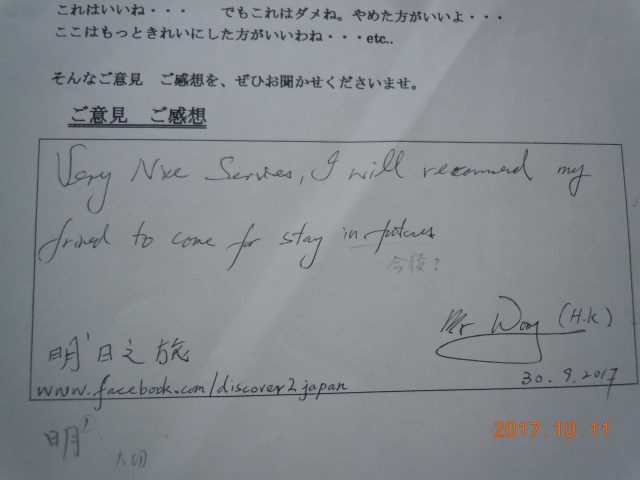 これはいいね・・・　　でもこれはダメね。やめた方がいいよ・・・
ここはもっときれいにした方がいいわね・・・etc..
そんなご意見　ご感想を、ぜひお聞かせくださいませ。
ご意見　ご感想
Very Nice Services, I will recommend my
friend to come for stay in future
今後？
Mr Wong (H.K)
明日之旅
www.facebook.com/discover2japan
30.9.2017
明
大切
2017.10.11